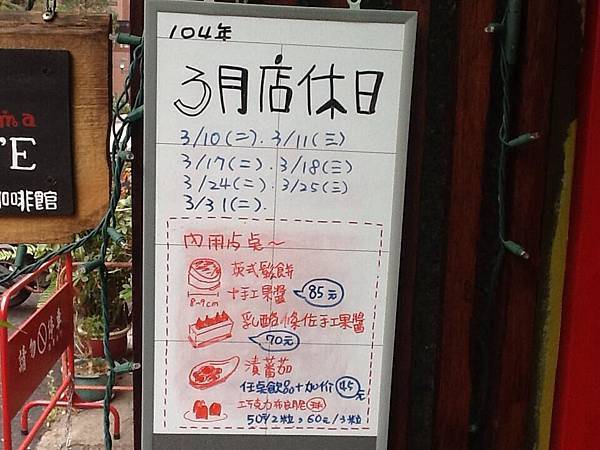 104年
3月店休日
3/10(二). 3/11(三)
3/17(二). 3/18(三)
3/24(二). 3/25(三)
3/31(二).
內用点桌~
英式鬆餅
8-9cm
+手工果醬 85元
乳酪條佐手工果醬
70元
漬蕃茄
任桌飲品+加价 45元
巧克力布朗
50元/2粒, 60元/3粒
ma
E
咖啡館
請勿停車